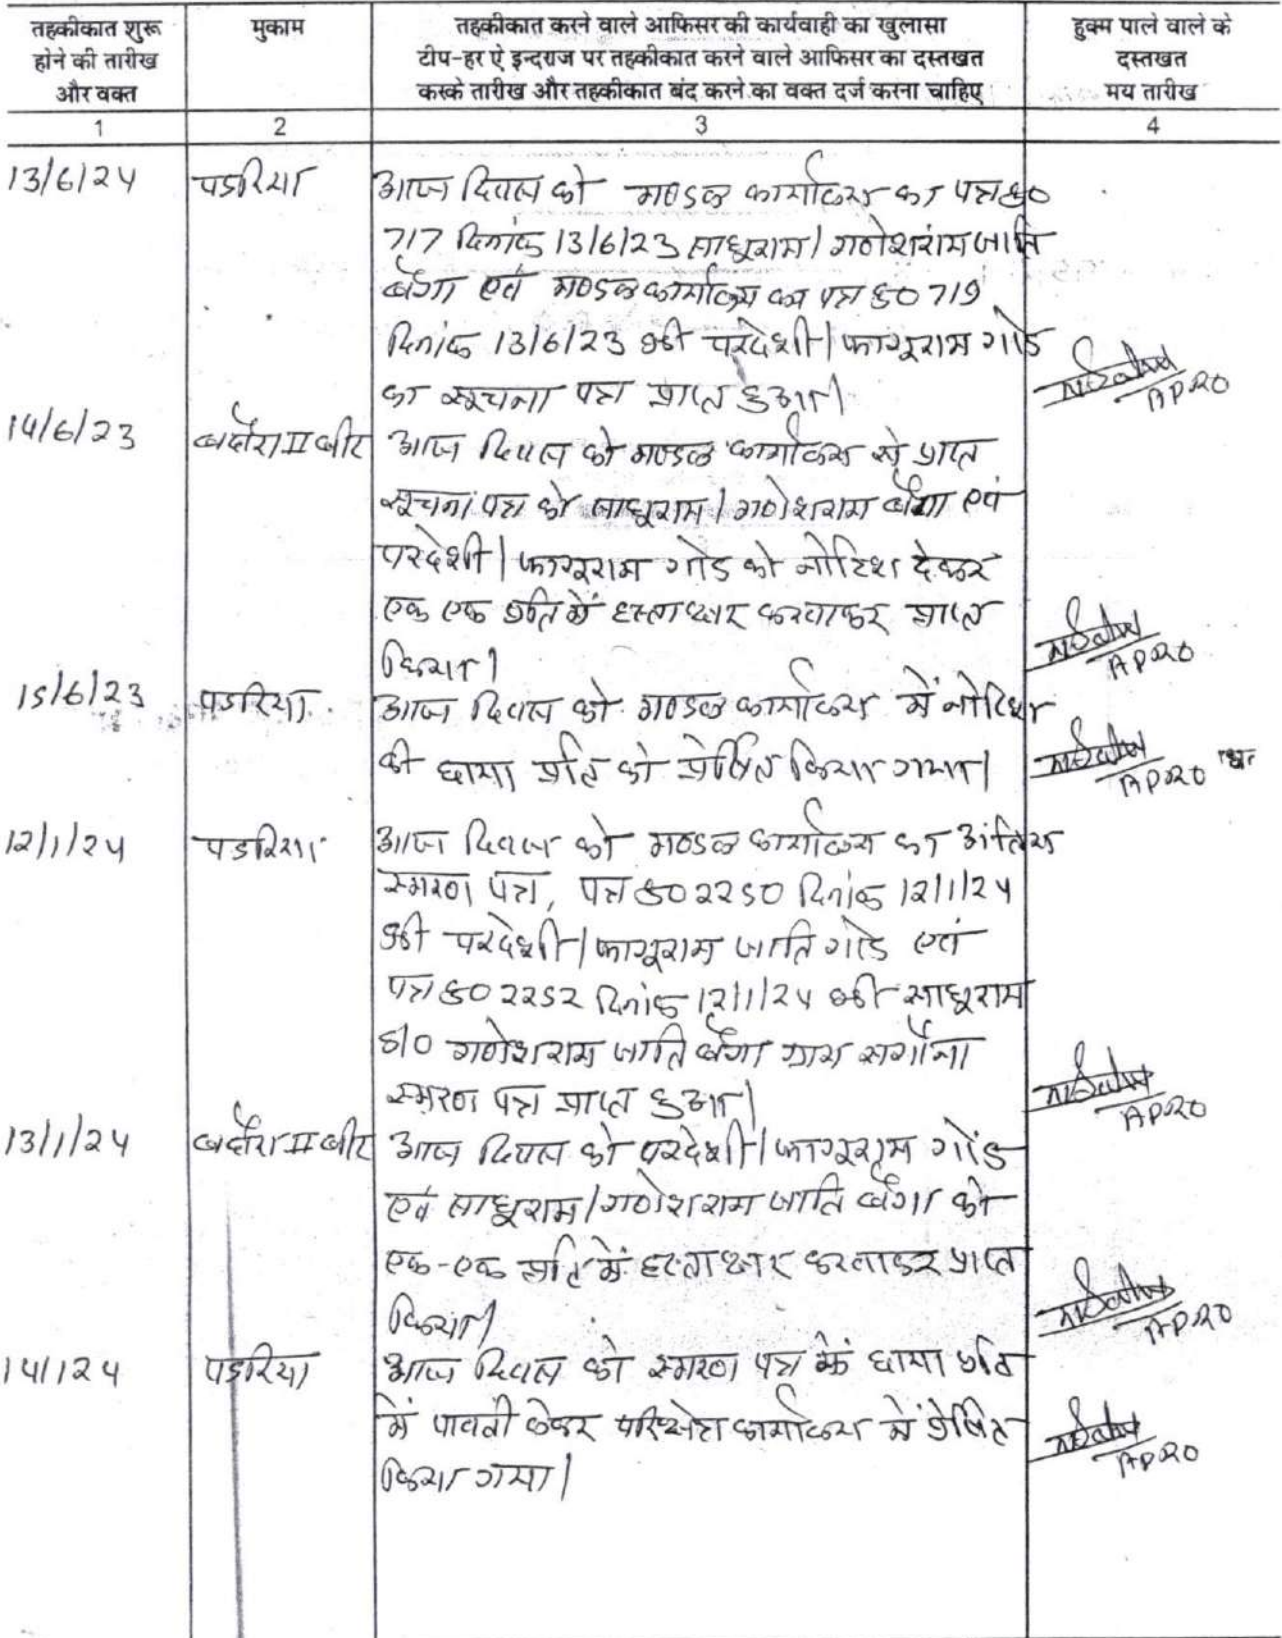 तहकीकात शुरू होने की तारीख और वक्त
मुकाम
तहकीकात करने वाले आफिसर की कार्यवाही का खुलासा
टीप-हर ऐ इन्दराज पर तहकीकात करने वाले आफिसर का दस्तखत
करके तारीख और तहकीकात बंद करने का वक्त दर्ज करना चाहिए
हुक्म पाले वाले के दस्तखत मय तारीख
1 2 3 4
13/6/24 पडरिया आज दिवस को मण्डल कार्यालय का पत्र क्र0
717 दिनांक 13/6/23 साधूराम/गणेशराम जाति
बैगा एवं मण्डल कार्यालय का पत्र क्र0 719
दिनांक 13/6/23 श्री परदेशी/फागूराम गोड
का सूचना पत्र प्राप्त हुआ।
APRO
14/6/23 II बीट आज दिवस को मण्डल कार्यालय से प्राप्त
सूचना पत्र को साधूराम/गणेशराम बैगा एवं
परदेशी/फागूराम गोड को नोटिश देकर
एक एक प्रति में हस्ताक्षर करवाकर प्राप्त
किया।
APRO
15/6/23 पडरिया आज दिवस को मण्डल कार्यालय में नोटिश
की छाया प्रति को प्रेषित किया गया।
APRO
12/1/24 पडरिया आज दिवस को मण्डल कार्यालय का अंतिम
स्मरण पत्र, पत्र क्र0 2250 दिनांक 12/1/24
श्री परदेशी/फागूराम जाति गोड एवं
पत्र क्र0 2252 दिनांक 12/1/24 श्री साधूराम
S/O गणेशराम जाति बैगा ग्राम सरगोना
स्मरण पत्र प्राप्त हुआ।
APRO
13/1/24 II बीट आज दिवस को परदेशी/फागूराम गोंड
एवं साधूराम/गणेशराम जाति बैगा को
एक-एक प्रति में हस्ताक्षर करवाकर प्राप्त
किया।
APRO
14/124 पडरिया आज दिवस को स्मरण पत्र के छाया प्रति
में पावती लेकर परिक्षेत्र कार्यालय में प्रेषित
किया गया।
APRO